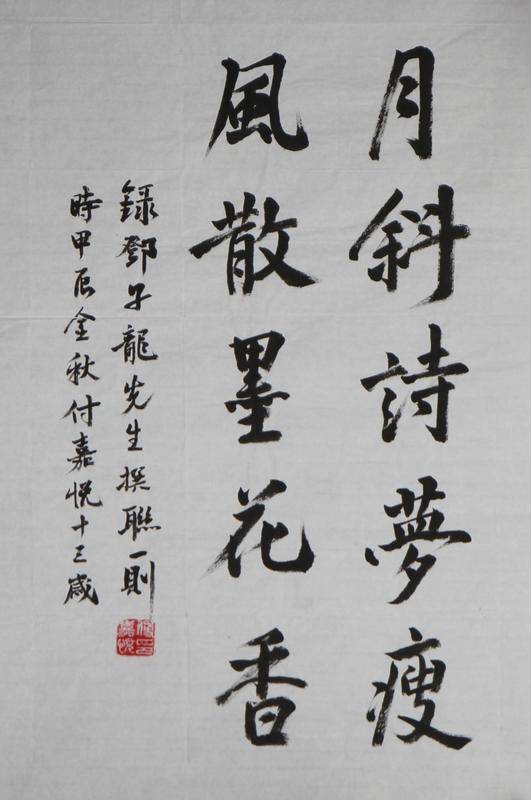 月斜詩夢瘦
風散墨花香
録鄧子龍先生撰聯一則
時甲辰金秋付嘉悅十三歲